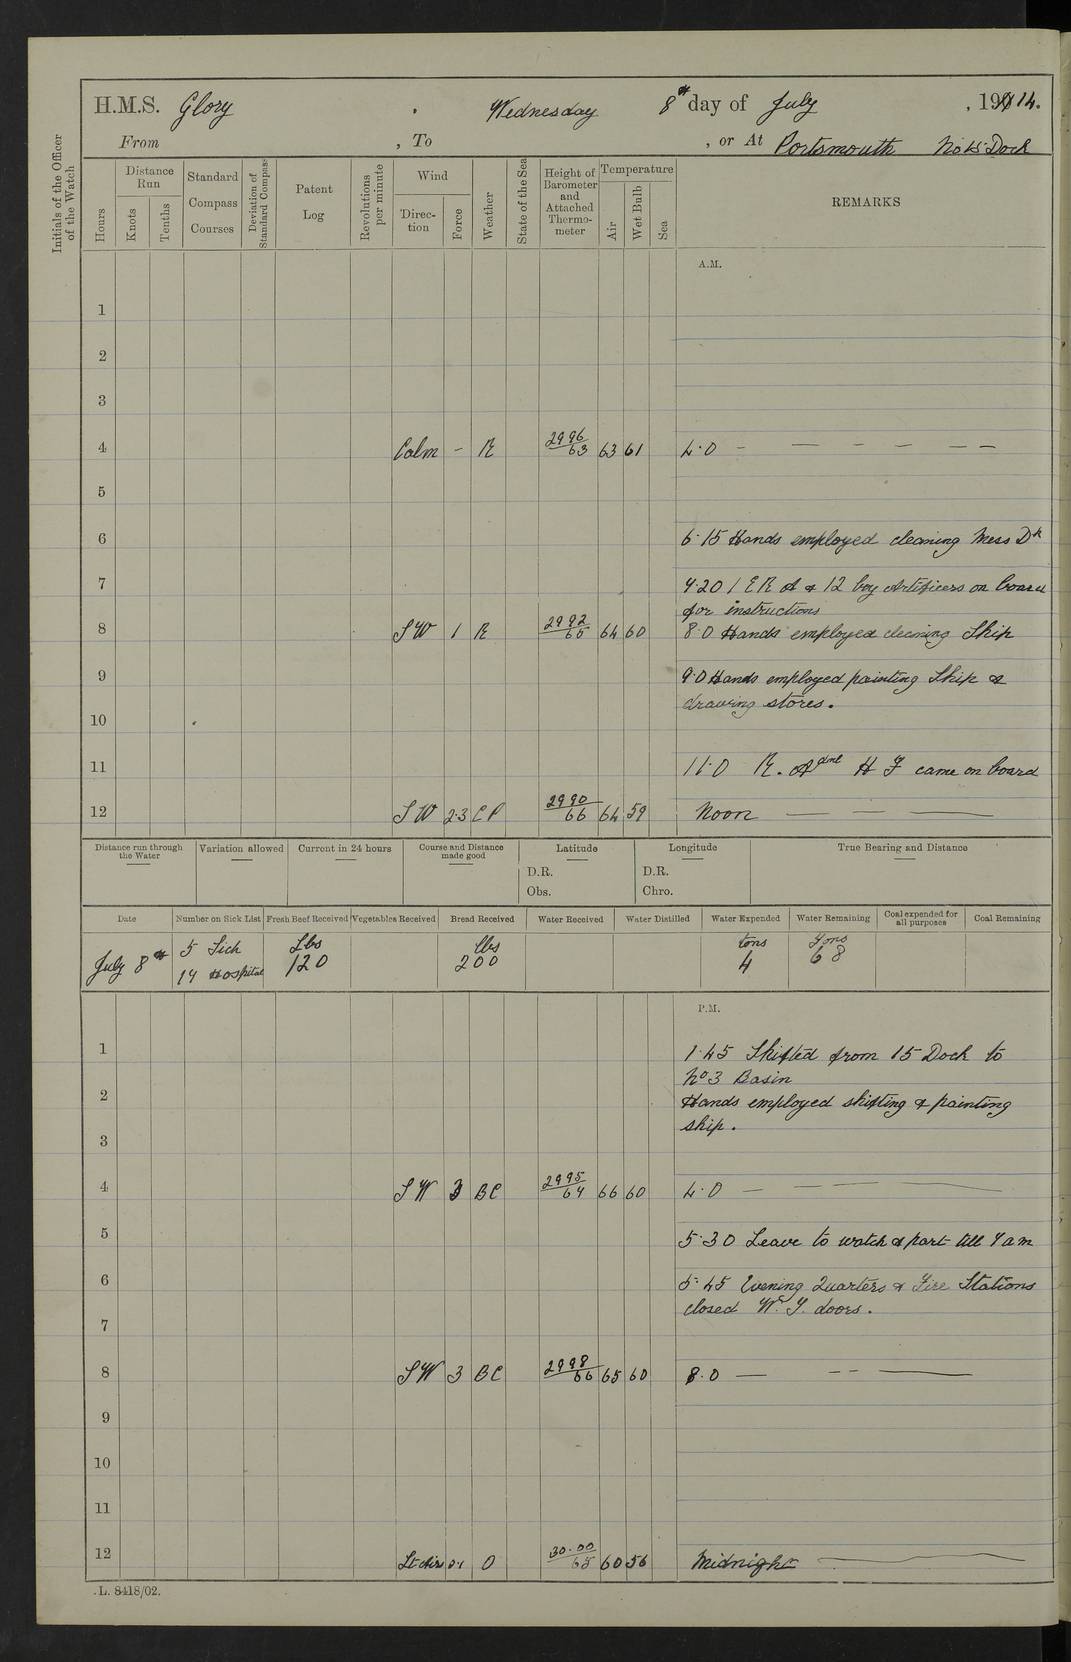 H.M.S. Glory Wednesday 8th day of July, 1914.
From , To , or At Portsmouth No 15 Dock
Initials of the Officer of the Watch
Hours
Distance Run
Knots
Tenths
Standard Compass Courses
Deviation of Standard Compass
Patent Log
Revolutions per minute
Wind
Direction
Force
Weather
State of the Sea
Height of Barometer and Attached Thermometer
Temperature
Air
Wet Bulb
Sea
REMARKS
A.M.
1
2
3
4 Calm - R 2996/63 63 61 4.0 - — — – – — —
5
6 6.15 Hands employed cleaning Mess Dk
7 7.20 1 E R A & 12 boy Artificers on board
for instructions
8 SW 1 R 2992/65 64 60 8.0 Hands employed cleaning Ship
9 9.0 Hands employed painting Ship &
drawing stores.
10
11 11.0 R. Adml H F came on board
12 SW 2.3 CP 2990/66 64 59 Noon — —
Distance run through the Water
Variation allowed
Current in 24 hours
Course and Distance made good
Latitude
D.R.
Obs.
Longitude
D.R.
Chro.
True Bearing and Distance
Date Number on Sick List Fresh Beef Received Vegetables Received Bread Received Water Received Water Distilled Water Expended Water Remaining Coal expended for all purposes Coal Remaining
5 Sick Lbs lbs tons Tons
July 8th 14 Hospital 120 200 4 68
P.M.
1 1.45 Shifted from 15 Dock to
No 3 Basin
2 Hands employed shifting & painting
3 ship.
4 SW 3 BC 2995/64 66 60 4.0 — — — —
5 5.30 Leave to watch & part till 7 am
6 5.45 Evening Quarters & Fire Stations
closed W.T. doors.
7
8 SW 3 BC 2998/66 65 60 8.0 — – – —
9
10
11
12 Lt Airs 0.1 O 30.00/65 60 56 Midnight —
L. 8418/02.